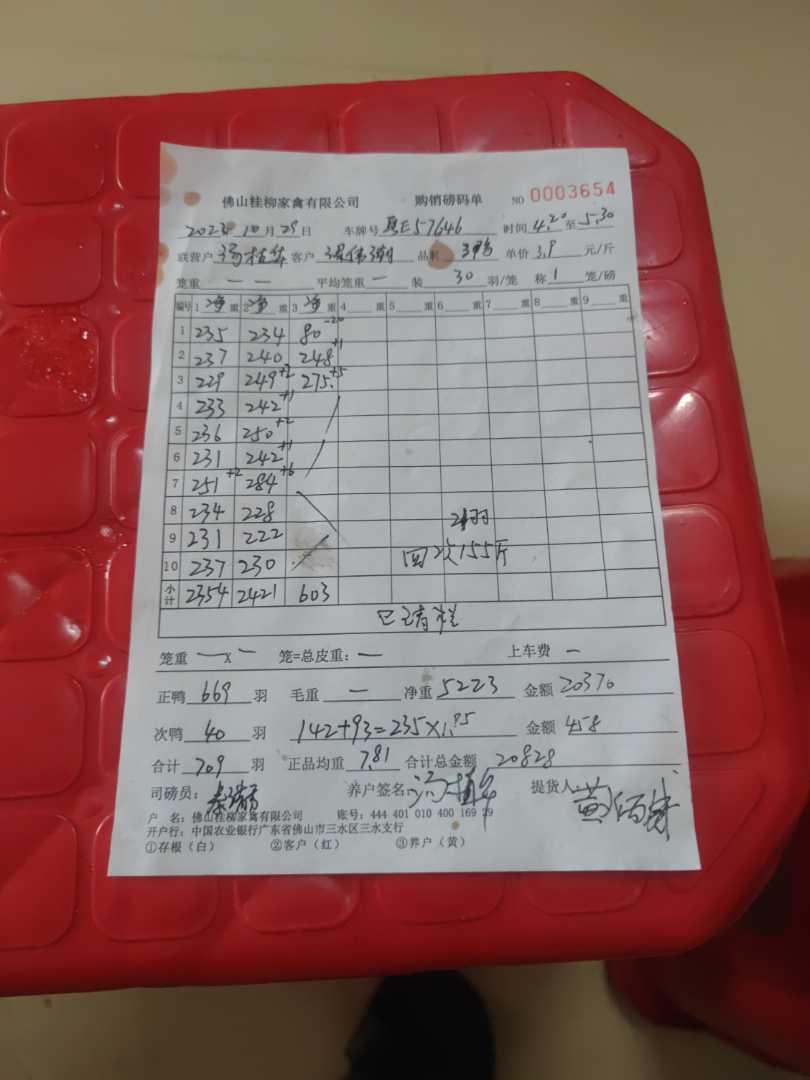 佛山桂柳家禽有限公司 购销磅码单 NO 0003654
2023年10月29日 车牌号 E57646 时间 4.20 至 5.30
联营户 冯植华 客户 温伟潮 品种 单价 3.9 元/斤
笼重 — — 平均笼重 — 装 30 羽/笼 称 1 笼/磅
编号 1 净 重 2 净 重 3 净 重 4 重 5 重 6 重 7 重 8 重 9 重
1 235 234 80 -20
2 237 240 248 +1
3 229 249 +2 275 +5
4 233 242 +1
5 236 250 +2
6 231 242 +1
7 251 +2 284 +6
8 234 228
9 231 222
10 237 230
回次155斤
小计 2354 2421 603
已清栏
笼重 — x — 笼=总皮重: — 上车费 —
正鸭 669 羽 毛重 — 净重 5223 金额 20370
次鸭 40 羽 142+93=235×1.95 金额 458
合计 709 羽 正品均重 7.81 合计总金额 20828
司磅员: 养户签名: 冯植华 提货人
户 名: 佛山桂柳家禽有限公司 账号: 444 401 010 400 169 29
开户行: 中国农业银行广东省佛山市三水区三水支行
①存根(白) ②客户(红) ③养户(黄)